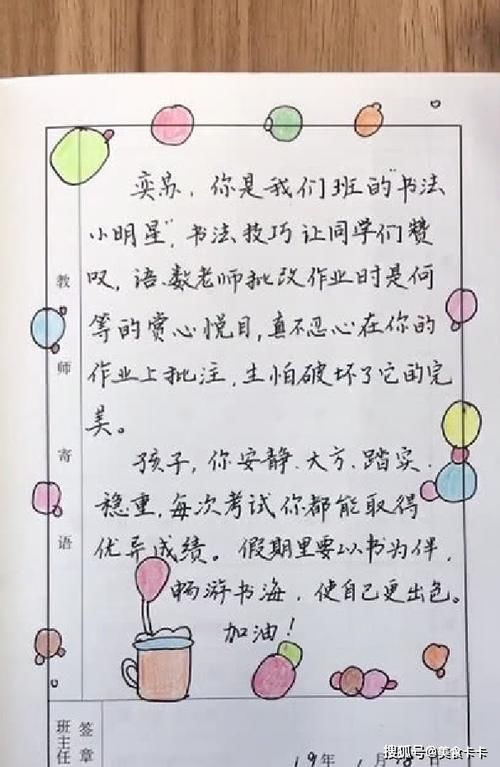 奕苏，你是我们班的“书法
小明星”，书法技巧让同学们赞
叹，语、数老师批改作业时是何
等的赏心悦目，真不忍心在你的
作业上批注，生怕破坏了它的完
美。
孩子，你安静、大方、踏实、
稳重，每次考试你都能取得
优异成绩。假期里要以书为伴，
畅游书海，使自己更出色。
加油！
教师寄语
班主任
签章
19年1月18日
搜狐号@美食卡卡